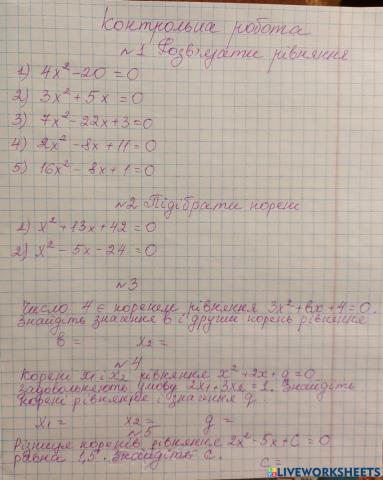 Контрольна робота
№1 Розв'язати рівняння
1) 4x² - 20 = 0
2) 3x² + 5x = 0
3) 7x² - 22x + 3 = 0
4) 2x² - 8x + 11 = 0
5) 16x² - 8x + 1 = 0
№2 Підібрати корені
1) x² + 13x + 42 = 0
2) x² - 5x - 24 = 0
№3
Число 4 є коренем рівняння 3x² + bx + 4 = 0.
Знайдіть значення b і другий корень рівняння
b = x₂ =
№4
Корені x₁ і x₂ рівняння x² + 2x + q = 0
задовольняють умову 2x₁ + 3x₂ = 1. Знайдіть
корені рівняння і значення q
x₁ = x₂ = q =
№5
Різниця коренів рівняння 2x² - 5x + c = 0
равна 1,5. Знайдіть c.
c =
LIVEWORKSHEETS